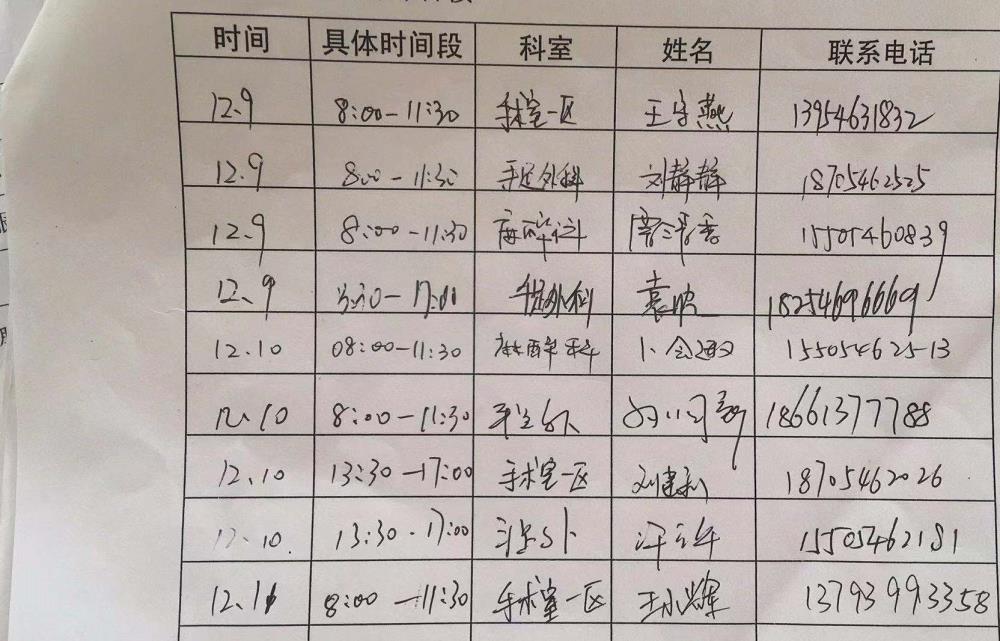 时间 具体时间段 科室 姓名 联系电话
12.9 8:00-11:30 手术室一区 王学燕 13954631832
12.9 8:00-11:30 手足外科 刘静静 18705462525
12.9 8:00-11:30 麻醉科 15505460839
12.9 -17:00 手足外科 袁 18254696669
12.10 08:00-11:30 麻醉科 卜会 15505462513
12.10 8:00-11:30 18661377788
12.10 13:30-17:00 手术室一区 刘建 18705462026
12.10. 13:30-17:00 15505462181
12.11 8:00-11:30 手术室一区 王小辉 13793993358